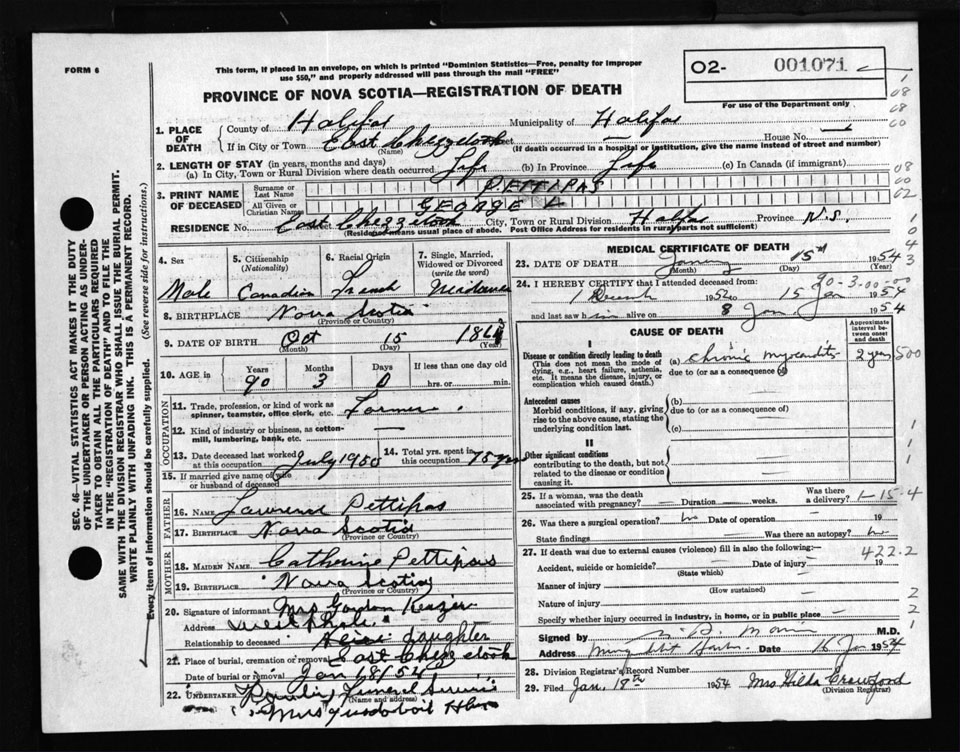 FORM 6
This form, if placed in an envelope, on which is printed "Dominion Statistics—Free, penalty for improper
use $50," and properly addressed will pass through the mail "FREE"
O2- 001071
For use of the Department only
PROVINCE OF NOVA SCOTIA—REGISTRATION OF DEATH
1. PLACE OF DEATH
County of Halifax Municipality of Halifax
If in City or Town East Chezzetcook House No.
(Name) (If death occurred in a hospital or institution, give the name instead of street and number)
2. LENGTH OF STAY (in years, months and days)
(a) In City, Town or Rural Division where death occurred Life (b) In Province Life (c) In Canada (if immigrant)
3. PRINT NAME OF DECEASED
Surname or Last Name PETTIPAS
All Given or Christian Names GEORGE
RESIDENCE No. East Chezzetcook City, Town or Rural Division Halifax Province N.S.
(Residence means usual place of abode. Post Office Address for residents in rural parts not sufficient)
4. Sex
Male
5. Citizenship (Nationality)
Canadian
6. Racial Origin
French
7. Single, Married, Widowed or Divorced (write the word)
Widower
8. BIRTHPLACE Nova Scotia
(Province or Country)
9. DATE OF BIRTH Oct 15
(Month) (Day) (Year)
10. AGE in
Years Months Days If less than one day old
90 3 0 hrs. or min.
OCCUPATION
11. Trade, profession, or kind of work as
spinner, teamster, office clerk, etc. Farmer
12. Kind of industry or business, as cotton-
mill, lumbering, bank, etc. —
13. Date deceased last worked at this occupation July 1950
14. Total yrs. spent in this occupation 75 yrs
15. If married give name of wife or husband of deceased
FATHER
16. NAME Lawrence Pettipas
17. BIRTHPLACE Nova Scotia
(Province or Country)
MOTHER
18. MAIDEN NAME Catherine Pettipas
19. BIRTHPLACE Nova Scotia
(Province or Country)
20. Signature of informant Mrs Gordon
Address
Relationship to deceased daughter
21. Place of burial, cremation or removal East Chezzetcook
Date of burial or removal Jan 18/54
22. UNDERTAKER Funeral Service
(Name and address)
Musquodoboit Hbr
MEDICAL CERTIFICATE OF DEATH
23. DATE OF DEATH 15th 1954
(Month) (Day) (Year)
24. I HEREBY CERTIFY that I attended deceased from: 90-3.00-00
15 Jan 1954
and last saw him alive on 8 Jan 1954
CAUSE OF DEATH
Approximate interval between onset and death
I
Disease or condition directly leading to death (a) Chronic myocarditis 2 years 500
(This does not mean the mode of dying, e.g., heart failure, asthenia, etc. It means the disease, injury, or complication which caused death.)
due to (or as a consequence of)
Antecedent causes
Morbid conditions, if any, giving rise to the above cause, stating the underlying condition last.
(b)
due to (or as a consequence of)
(c)
II
Other significant conditions
contributing to the death, but not related to the disease or condition causing it.
25. If a woman, was the death associated with pregnancy? — Duration — weeks. Was there a delivery? 1-15-4
26. Was there a surgical operation? no Date of operation — 19
State findings Was there an autopsy? no
27. If death was due to external causes (violence) fill in also the following:— 422.2
Accident, suicide or homicide? — Date of injury — 19
(State which)
Manner of injury
(How sustained)
Nature of injury —
Specify whether injury occurred in industry, in home, or in public place —
Signed by M.D.
Address Date 16 Jan 1954
28. Division Registrar's Record Number
29. Filed Jan. 18th 1954 Mrs Hilda Crawford
(Division Registrar)
SEC. 46—VITAL STATISTICS ACT MAKES IT THE DUTY
OF THE UNDERTAKER OR PERSON ACTING AS UNDER-
TAKER TO OBTAIN ALL THE PARTICULARS REQUIRED
IN THE "REGISTRATION OF DEATH" AND TO FILE THE
SAME WITH THE DIVISION REGISTRAR WHO SHALL ISSUE THE BURIAL PERMIT.
WRITE PLAINLY WITH UNFADING INK. THIS IS A PERMANENT RECORD.
Every item of information should be carefully supplied. (See reverse side for instructions.)